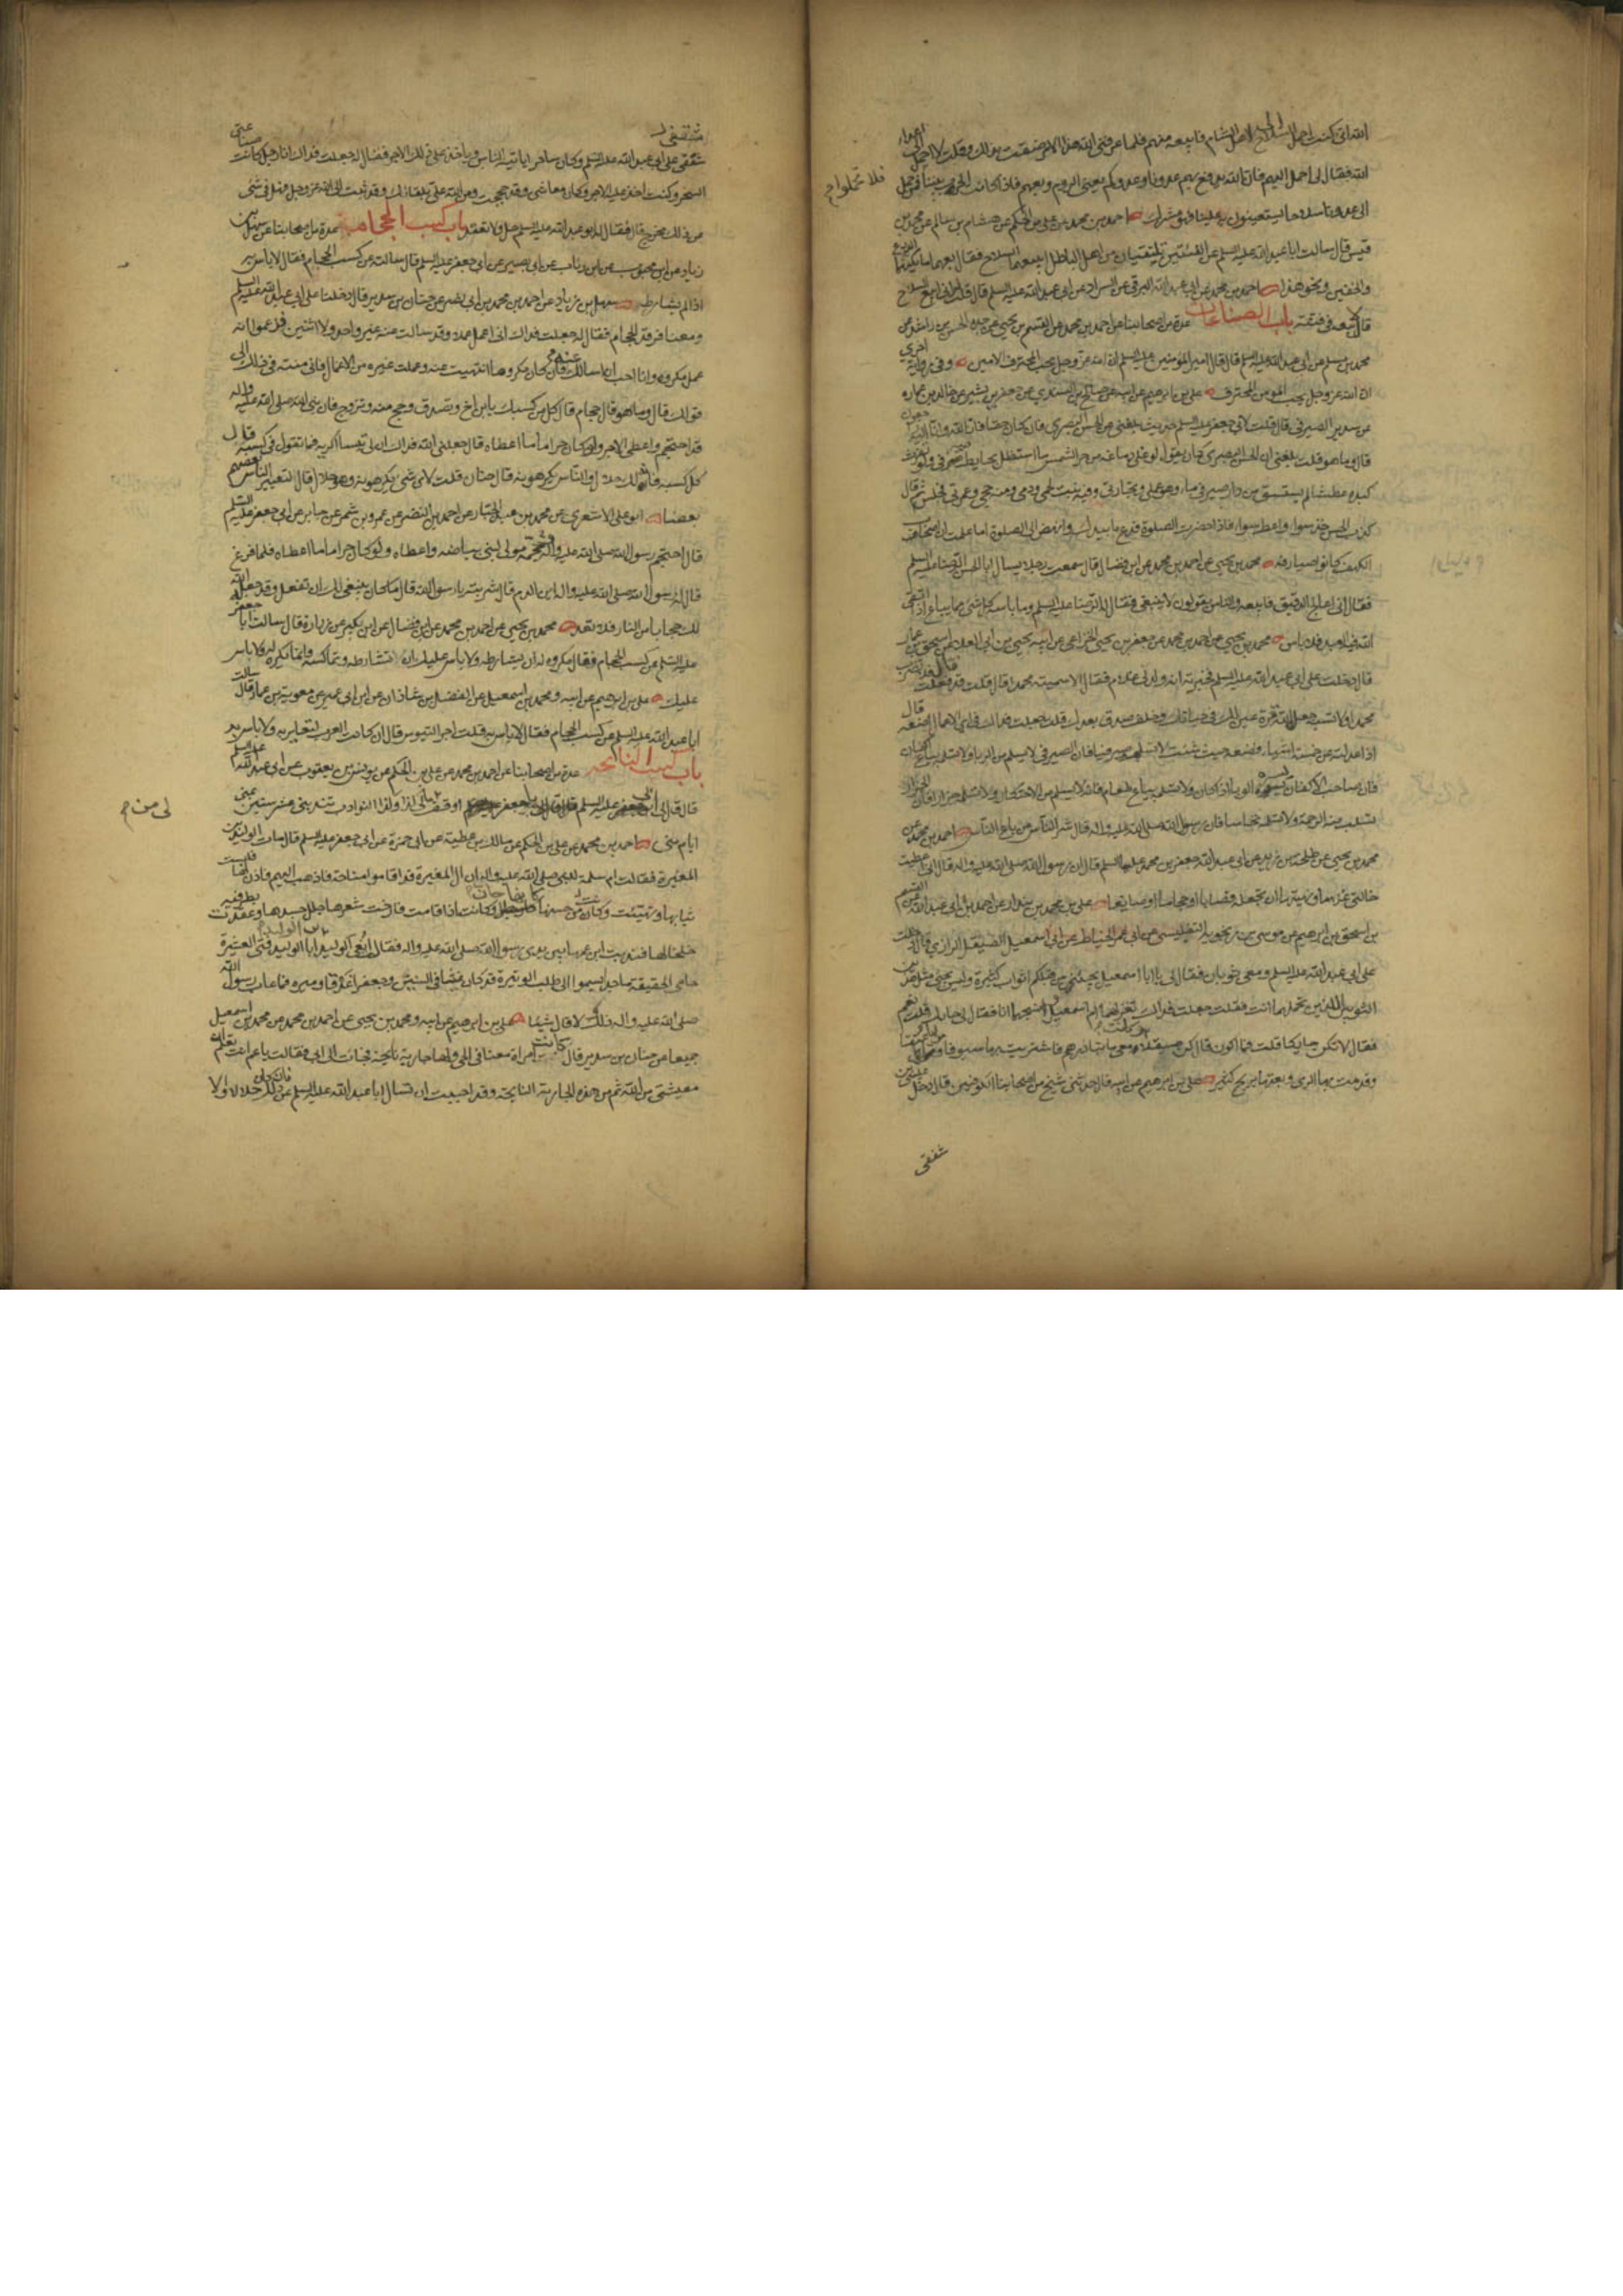 الله اني كنت احمل السلاح الى اهل الشام فابيعه منهم فلما عرفني الله هذا الامر ضقت بذلك وقلت لا احمل الى اعداء
الله فقال لي احمل اليهم فان الله يدفع بهم عدونا وعدوكم يعني الروم وبعهم فاذا كانت الحرب بيننا فمن حمل
فلا تحملوا
الى عدونا سلاحا يستعينون به علينا فهو مشرك احمد بن محمد عن علي بن الحكم عن هشام بن سالم عن محمد بن
قيس قال سالت ابا عبد الله عليه السلم عن الفئتين تلتقيان من اهل الباطل ابيعهما السلاح فقال بعهما ما يكنهما الدرع
والخفين ونحو هذا احمد بن محمد عن ابي عبد الله البرقي عن السراد عن ابي عبد الله عليه السلم قال قلت اني ابيع السلاح
قال لا تبعه في فتنة باب الصناعات عدة من اصحابنا عن احمد بن محمد عن القسم بن يحيى عن جده الحسن بن راشد عن
محمد بن مسلم عن ابي عبد الله عليه السلم قال قال امير المؤمنين عليه السلم ان الله عز وجل يحب المحترف الامين وفي رواية اخرى
ان الله عز وجل يحب المؤمن المحترف علي بن ابراهيم عن ابيه عن صالح بن السندي عن جعفر بن بشير عن خالد بن عمارة
عن سدير الصيرفي قال قلت لابي جعفر عليه السلم حديث بلغني عن الحسن البصري فان كان حقا فانا لله وانا اليه راجعون
قال وما هو قلت بلغني ان الحسن البصري كان يقول لو غلى دماغه من حر الشمس ما استظل بحايط صيرفي ولو تفرث
كبده عطشا لم يستسق من دار صيرفي ماء وهو عملي وتجارتي وفيه نبت لحمي ودمي ومنه حجي وعمرتي فجلس ثم قال
كذب الحسن خذ سواء واعط سواء فاذا حضرت الصلوة فدع ما بيدك وانهض الى الصلوة اما علمت ان اصحاب
الكهف كانوا صيارفة محمد بن يحيى عن احمد بن محمد عن ابن فضال قال سمعت رجلا يسال ابا الحسن الرضا عليه السلم
فقال اني اعالج الدقيق فابيعه والناس يقولون لا ينبغي فقال له الرضا عليه السلم وما باسه كل شئ مما يباع اذا اتقى
الله فيه العبد فلا باس محمد بن يحيى عن احمد بن محمد عن جعفر بن يحيى الخزاعي عن ابيه يحيى بن ابي العلاء عن اسحق بن عمار
قال دخلت على ابي عبد الله عليه السلم فخبرته انه ولد لي غلام فقال الا سميته محمدا قال قلت قد فعلت قال فلا تضرب
محمدا ولا تسبه جعله الله قرة عين لك في حياتك وخلف صدق بعدك قلت جعلت فداك في اي الاعمال اضعه قال
اذا عدلته عن خمسة اشياء فضعه حيث شئت لا تسلمه صيرفيا فان الصيرفي لا يسلم من الربا ولا تسلمه بياع اكفان
فان صاحب الاكفان يسره الوباء اذا كان ولا تسلمه بياع طعام فانه لا يسلم من الاحتكار ولا تسلمه جزارا فان الجزار
تسلب منه الرحمة ولا تسلمه نخاسا فان رسول الله صلى الله عليه واله قال شر الناس من باع الناس احمد بن محمد عن
محمد بن يحيى عن طلحة بن زيد عن ابي عبد الله جعفر بن محمد عليهما السلم قال ان رسول الله صلى الله عليه واله قال اني اعطيت
خالتي غلاما ونهيتها ان تجعله قصابا او حجاما او صايغا علي بن محمد بن بندار عن احمد بن ابي عبد الله عن القسم
بن اسحق بن ابراهيم عن موسى بن زنجويه التفليسي عن ابي عمر الحناط عن ابي اسمعيل الصيقل الرازي قال دخلت
على ابي عبد الله عليه السلم ومعي ثوبان فقال لي يا ابا اسمعيل يجيئني من قبلكم اثواب كثيرة وليس يجيئني مثل هذين
الثوبين اللذين تحملهما انت فقلت جعلت فداك تغزلهما ام اسمعيل وانسجهما انا فقال لي حايك قلت نعم
فقال لا تكن حايكا قلت فما اكون قال كن صيقلا معي مائتا درهم فاشتريت بها سيوفا ومرايا عتقا
وقدمت بها الري وبعتها بربح كثير علي بن ابراهيم عن ابيه قال حدثني شيخ من اصحابنا الكوفيين قال دخل عيسى بن
شفقي
شقفي على ابي عبد الله عليه السلم وكان ساحرا ياتيه الناس وياخذ على ذلك الاجر فقال له جعلت فداك انا رجل كانت صناعتي
السحر وكنت اخذ عليه الاجر وكان معاشي وقد حججت ومن الله علي بلقائك وقد تبت الى الله عز وجل فهل لي في شئ
من ذلك مخرج قال فقال له ابو عبد الله عليه السلم حل ولا تعقد باب كسب الحجام عدة من اصحابنا عن سهل بن
زياد عن ابن محبوب عن ابن رئاب عن ابي بصير عن ابي جعفر عليه السلم قال سالته عن كسب الحجام فقال لا باس به
اذا لم يشارط سهل بن زياد عن احمد بن محمد بن ابي نصر عن حنان بن سدير قال دخلنا على ابي عبد الله عليه السلم
ومعنا فرقد الحجام فقال له جعلت فداك اني اعمل عملا وقد سالت عنه غير واحد ولا اثنين فزعموا انه
عمل مكروه وانا احب ان اسالك عنه فان كان مكروها انتهيت عنه وعملت غيره من الاعمال فاني منته في ذلك الى
قولك قال وما هو قال حجام قال كل من كسبك يا ابن اخ وتصدق وحج منه وتزوج فان نبي الله صلى الله عليه واله
قد احتجم واعطى الاجر ولو كان حراما ما اعطاه قال جعلني الله فداك ان لي تيسا اكريه فما تقول في كسبه قال
كل كسبه فانه لك حلال والناس يكرهونه قال حنان قلت لاي شئ يكرهونه وهو حلال قال لتعيير الناس بعضهم
بعضا ابو علي الاشعري عن محمد بن عبد الجبار عن احمد بن النضر عن عمرو بن شمر عن جابر عن ابي جعفر عليه السلم
قال احتجم رسول الله صلى الله عليه واله حجمه مولى لبني بياضة واعطاه ولو كان حراما ما اعطاه فلما فرغ
قال له رسول الله صلى الله عليه واله اين الدم قال شربته يا رسول الله قال ما كان ينبغي لك ان تفعل وقد جعله الله
لك حجابا من النار فلا تعد محمد بن يحيى عن احمد بن محمد عن ابن فضال عن ابن بكير عن زرارة قال سالت ابا جعفر
عليه السلم عن كسب الحجام فقال مكروه له ان يشارط ولا باس عليك ان تشارطه وتماكسه وانما يكره له ولا باس
عليك علي بن ابراهيم عن ابيه ومحمد بن اسمعيل عن الفضل بن شاذان عن ابن ابي عمير عن معوية بن عمار قال سالت
ابا عبد الله عليه السلم عن كسب الحجام فقال لا باس به قلت اجر التيوس قال ان كانت العرب لتعاير به ولا باس به
باب كسب النائحة عدة من اصحابنا عن احمد بن محمد عن علي بن الحكم عن يونس بن يعقوب عن ابي عبد الله عليه السلم
قال قال لي ابي يا جعفر اوقف لي من مالي كذا وكذا النوادب تندبني عشر سنين بمنى
لي من
ايام منى احمد بن محمد عن علي بن الحكم عن مالك بن عطية عن ابي حمزة عن ابي جعفر عليه السلم قال مات الوليد بن
المغيرة فقالت ام سلمة للنبي صلى الله عليه واله ان ال المغيرة قد اقاموا مناحة فاذهب اليهم فاذن لها فلبست
ثيابها وتهيئت وكانت من حسنها كانها جان وكانت اذا قامت فارخت شعرها جلل جسدها وعقدت بطرفيه
خلخالها فندبت ابن عمها بين يدي رسول الله صلى الله عليه واله فقالت انعى الوليد بن الوليد ابا الوليد فتى العشيرة
حامي الحقيقة ماجد يسموا الى طلب الوتيرة قد كان غيثا في السنين وجعفرا غدقا وميرة فما عاب رسول الله
صلى الله عليه واله ذلك ولا قال شيئا علي بن ابراهيم عن ابيه ومحمد بن يحيى عن احمد بن محمد عن محمد بن اسمعيل
جميعا عن حنان بن سدير قال كانت امراة معنا في الحي ولها جارية نايحة فجاءت الى ابي فقالت يا عم انت تعلم ان
معيشتي من الله ثم من هذه الجارية النايحة وقد احببت ان تسال ابا عبد الله عليه السلم عن ذلك فان كان حلالا والا